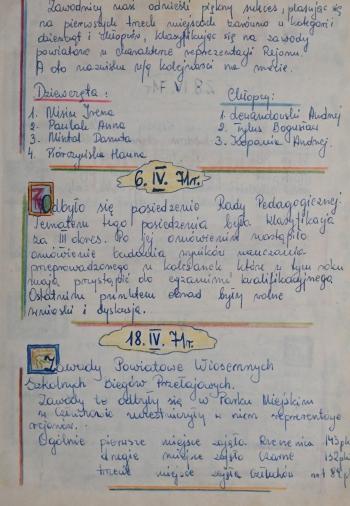 Zawodnicy nasi odnieśli piękny sukces, plasując się
na pierwszych trzech miejscach zarówno w kategorii
dziewcząt i chłopców, klasyfikując się na zawody
powiatowe w charakterze reprezentacji Rejonu.
A oto nazwiska wg kolejności na mecie.
Dziewczęta:
1. Misiu Irena
2. Anna
3. Danuta
4. Korczyńska Hanna
Chłopcy:
1. Lewandowski Andrzej
2. Tylus Bogusław
3. Andrzej.
6. IV. 71r.
Odbyło się posiedzenie Rady Pedagogicznej.
Tematem tego posiedzenia była klasyfikacja
za III okres. Po jej omówieniu nastąpiło
omówienie badania wyników nauczania
przeprowadzonego w klasach które w tym roku
mają przystąpić do egzaminu kwalifikacyjnego
Ostatnim punktem obrad były wolne
wnioski i dyskusja.
18. IV. 71r.
Zawody Powiatowe Wiosennych
Szkolnych Biegów Przełajowych.
Zawody te odbyły się w Parku Miejskim
w Człuchowie uczestniczyły w nich reprezentacje
rejonów.
Ogólnie pierwsze miejsce zajęła Rzeczenica 145 pkt
drugie miejsce zajęło Czarne 132 pkt
trzecie miejsce zajął Człuchów nr 1 84 pkt